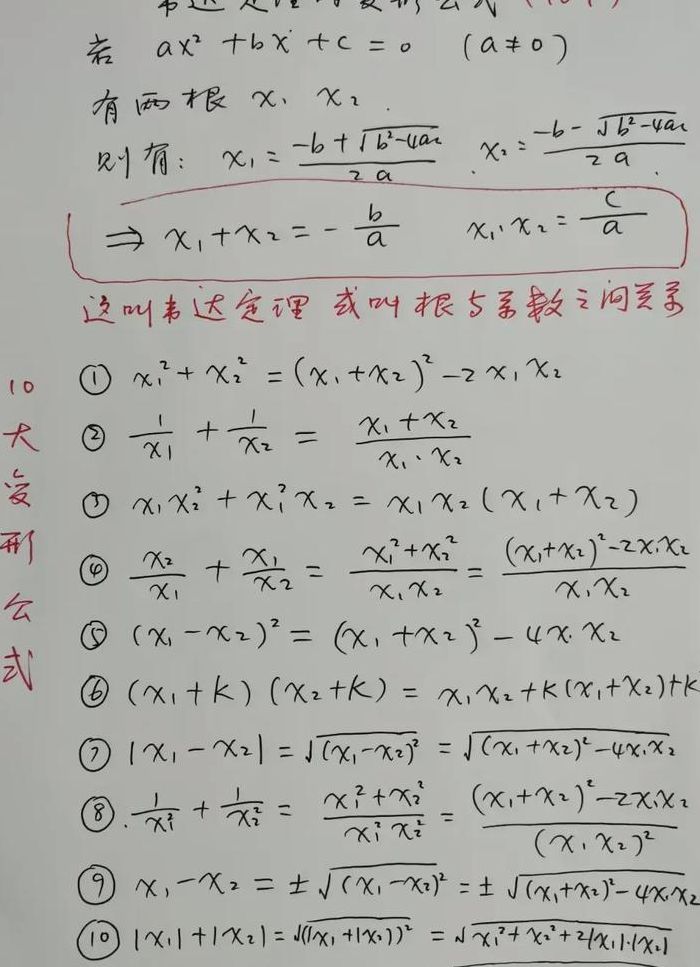 韦达定理的变形公式(10个)
若 ax² + bx + c = 0 (a ≠ 0)
有两根 x₁ x₂.
则有: x₁ = (-b + √(b²-4ac))/(2a) x₂ = (-b - √(b²-4ac))/(2a).
⇒ x₁ + x₂ = -b/a x₁·x₂ = c/a
这叫韦达定理 或叫根与系数之间关系
10大变形公式
① x₁² + x₂² = (x₁ + x₂)² - 2x₁x₂
② 1/x₁ + 1/x₂ = (x₁ + x₂)/(x₁·x₂)
③ x₁x₂² + x₁²x₂ = x₁x₂(x₁ + x₂)
④ x₂/x₁ + x₁/x₂ = (x₁² + x₂²)/(x₁x₂) = ((x₁+x₂)² - 2x₁x₂)/(x₁x₂)
⑤ (x₁ - x₂)² = (x₁ + x₂)² - 4x₁x₂
⑥ (x₁ + k)(x₂ + k) = x₁x₂ + k(x₁ + x₂) + k
⑦ |x₁ - x₂| = √((x₁-x₂)²) = √((x₁+x₂)² - 4x₁x₂)
⑧. 1/x₁² + 1/x₂² = (x₁² + x₂²)/(x₁²x₂²) = ((x₁+x₂)² - 2x₁x₂)/((x₁x₂)²)
⑨ x₁ - x₂ = ±√((x₁-x₂)²) = ±√((x₁+x₂)² - 4x₁x₂)
⑩ |x₁| + |x₂| = √((|x₁| + |x₂|)²) = √(x₁² + x₂² + 2|x₁|·|x₂|)